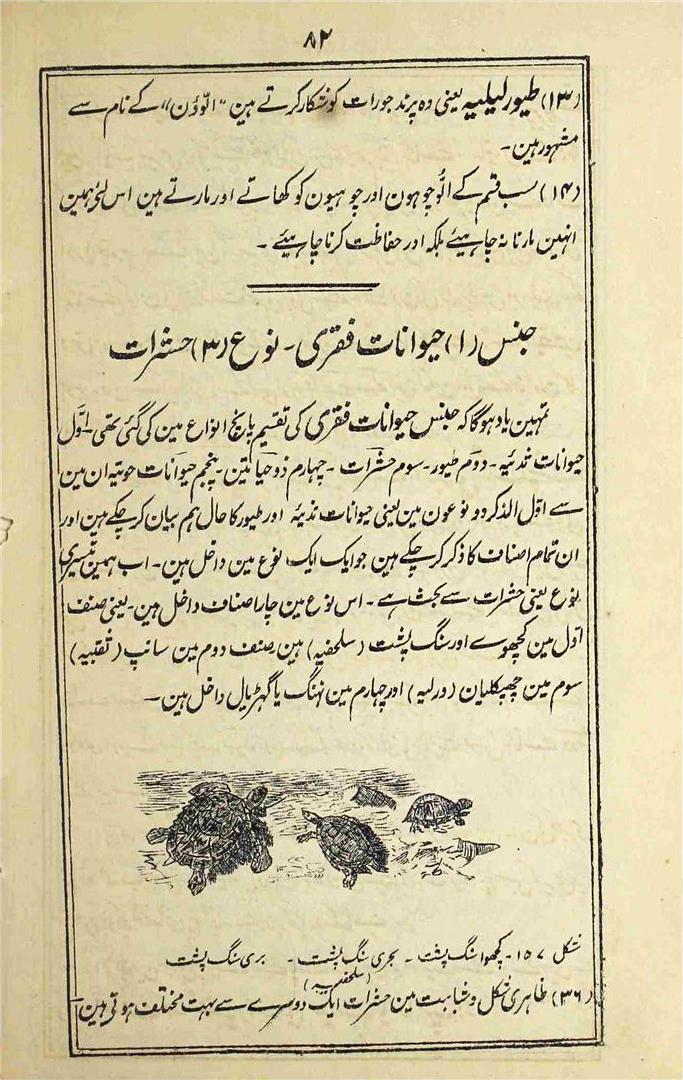 ۸۲
(۱۳) طیور لیلیہ یعنی وہ پرند جو رات کو شکار کرتے ہین "الّووُن" کے نام سے
مشہور ہین۔
(۱۴) سب قسم کے الُّو چوہون اور چوہیون کو کھاتے اور مارتے ہین اس لئے ہمین
انہین مارنا نہ چاہیئے بلکہ اور حفاظت کرنا چاہیئے۔
جنس (۱) حیوانات فقری۔ نوع (۳) حشرات
تمہین یاد ہوگا کہ جنس حیوانات فقری کی تقسیم پانچ انواع مین کی گئی تھی۔ اوّل
حیوانات ثدئیہ۔ دوم طیور۔ سوم حشرات۔ چہارم ذو حیاتین۔ پنجم حیوانات حوتیہ ان مین
سے اوّل الذکر دو نوعون مین یعنی حیوانات ثدئیہ اور طیور کا حال ہم بیان کر چکے ہین اور
ان تمام اصناف کا ذکر کر چکے ہین جو ایک ایک نوع مین داخل ہین۔ اب ہمین تیسری
نوع یعنی حشرات سے بحث ہے۔ اس نوع مین چار اصناف داخل ہین۔ یعنی صنف
اوّل مین کچھوے اور سنگ پشت (سلحفیہ) ہین صنف دوم مین سانپ (ثعبیہ)
سوم مین چھپکلیان (ورلیہ) اور چہارم مین نہنگ یا گھڑیال داخل ہین۔
شکل ۱۵۷۔ کچھوا سنگ پشت۔ بحری سنگ پشت۔ بری سنگ پشت
(سلحفیہ)
(۳۶) ظاہری شکل و شباہت مین حشرات ایک دوسرے سے بہت مختلف ہوتی ہین